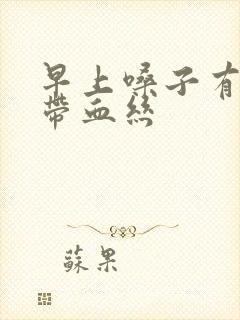 早上嗓子有
带血丝
蘇果